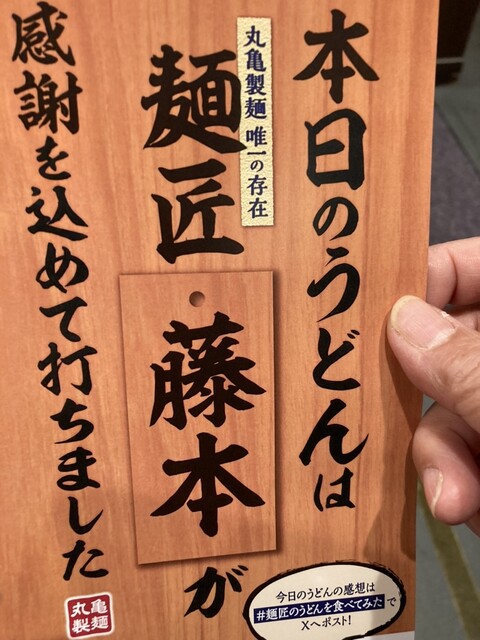 本日のうどんは
丸亀製麺 唯一の存在
麺匠
藤本が
感謝を込めて打ちました
丸亀
製麺
今日のうどんの感想は
#麺匠のうどんを食べてみた で
Xへポスト!